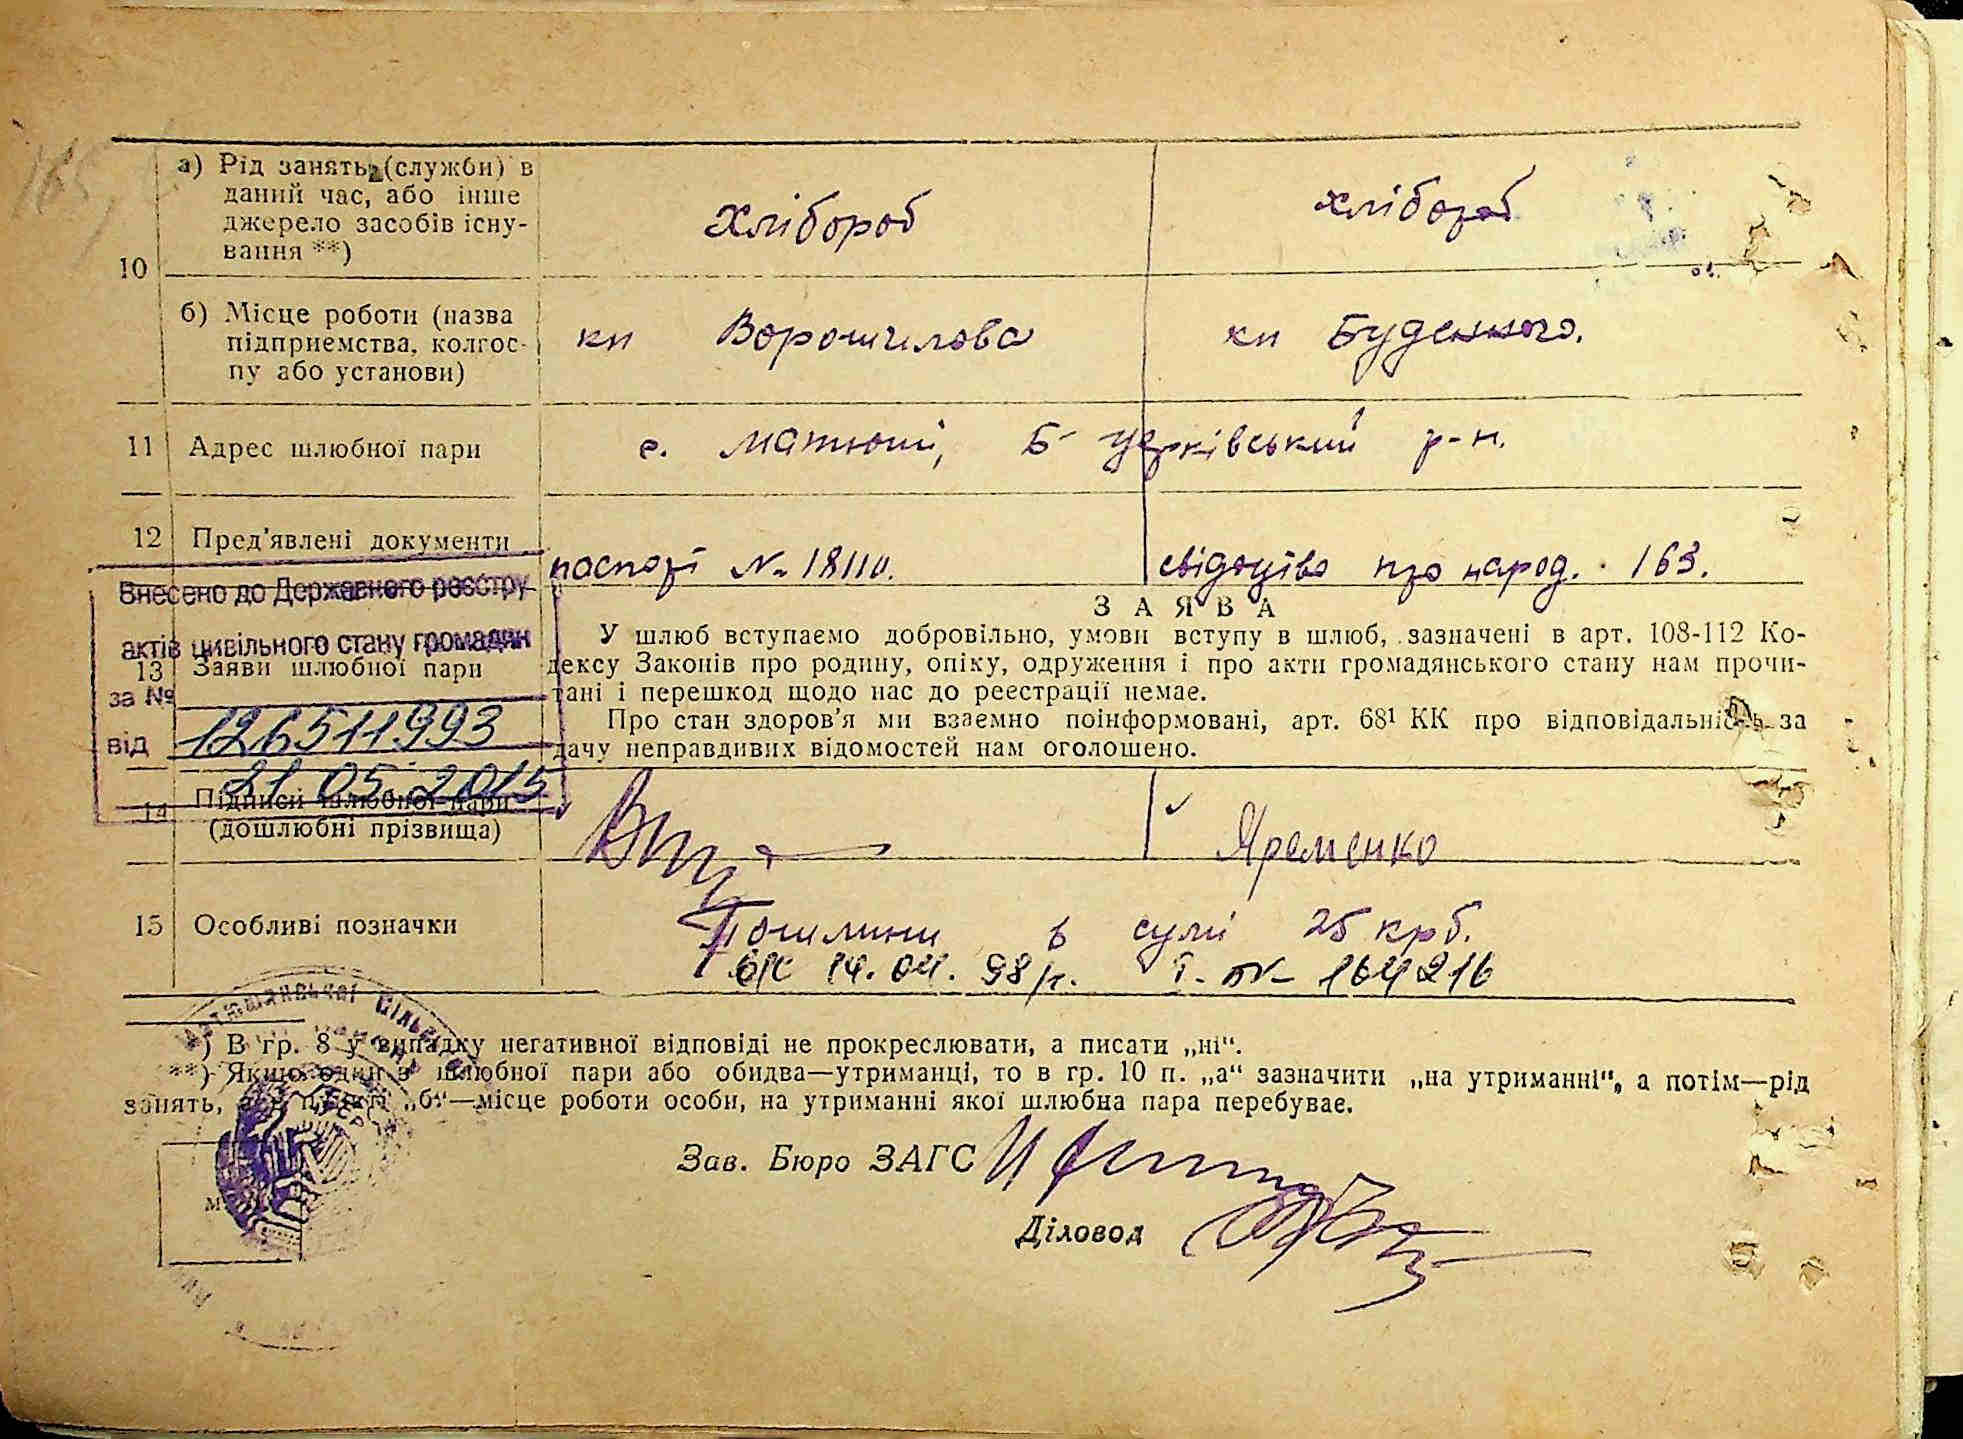 а) Рід занять (службн) в
даний час, або інше
джерело засобів існу-
вання **)
хлібороб
хлібороб
10
б) Місце роботи (назва
підприємства, колгос-
пу або установи)
кп Ворошилова
кп Буденного.
11 Адрес шлюбної пари
с. Матюші, Б-церківський р-н.
12 Пред'явлені документи
паспорт № 18110.
свідоцтво про народ. 163.
Внесено до Державного реєстру
актів цивільного стану громадян
за № 126511993
від 21 05 2015
13 Заяви шлюбної пари
ЗАЯВА
У шлюб вступаємо добровільно, умови вступу в шлюб, зазначені в арт. 108-112 Ко-
дексу Законів про родину, опіку, одруження і про акти громадянського стану нам прочи-
тані і перешкод щодо нас до реєстрації немає.
Про стан здоров'я ми взаємно поінформовані, арт. 68¹ КК про відповідальність за
дачу неправдивих відомостей нам оголошено.
14 Підписи шлюбної пари
(дошлюбні прізвища)
Яременко
15 Особливі позначки
Пошлини в сумі 25 крб.
14.04.98 р. 164216
*) В гр. 8 у випадку негативної відповіді не прокреслювати, а писати „ні“.
**) Якщо один з шлюбної пари або обидва—утриманці, то в гр. 10 п. „а“ зазначити „на утриманні“, а потім—рід
занять, „б“—місце роботи особи, на утриманні якої шлюбна пара перебуває.
Зав. Бюро ЗАГС
Діловод